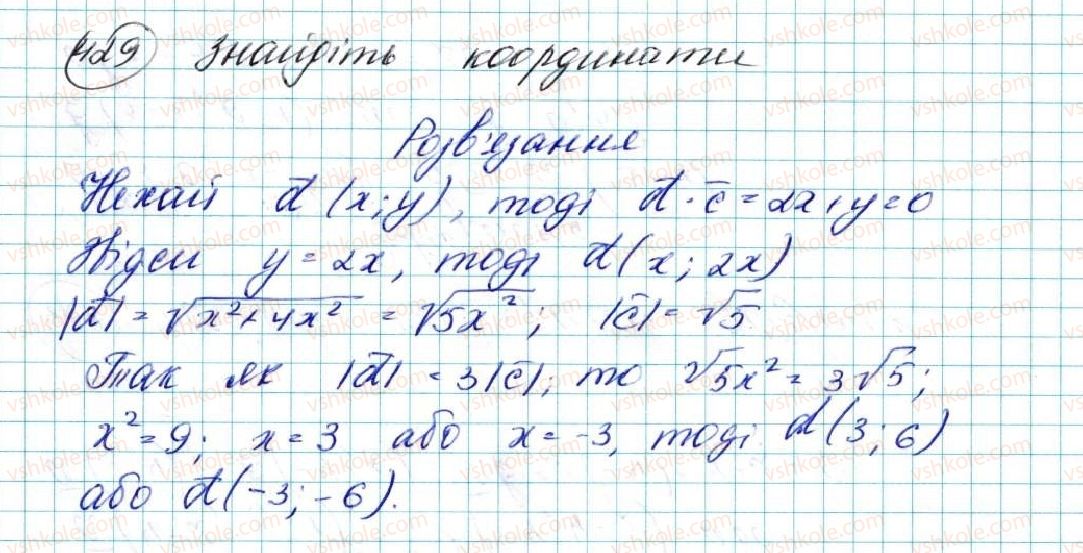 429 Знайдіть координати
Розв'язання
Нехай d̄ (x; y), тоді d̄ · c̄ = 2x + y = 0
Звідси y = 2x, тоді d̄ (x; 2x)
|d̄| = √x² + 4x² = √5x² ; |c̄| = √5
Так як |d̄| = 3|c̄|, то √5x² = 3√5;
x² = 9; x = 3 або x = -3, тоді d̄ (3; 6)
або d̄ (-3; -6).